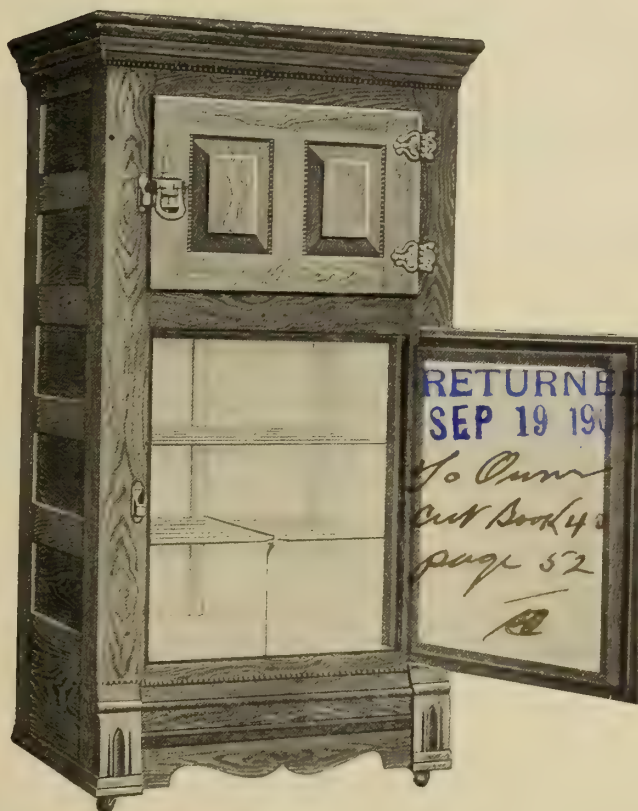 RETURNE
SEP 19 19
To
Cut Book 4
page 52